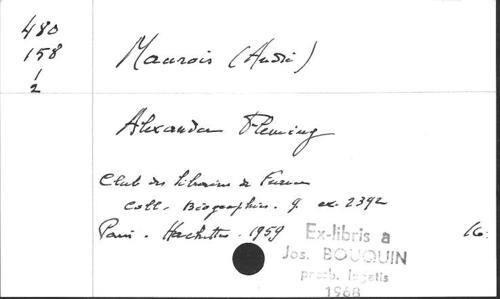 480
158
1
2
Maurois (André)
Alexander Fleming
Club des libraires de France
Coll. Biographies. 9 ex. 2392
Paris - Hachette - 1959
16:
Ex-libris a
Jos. BOUQUIN
presb. legatis
1968